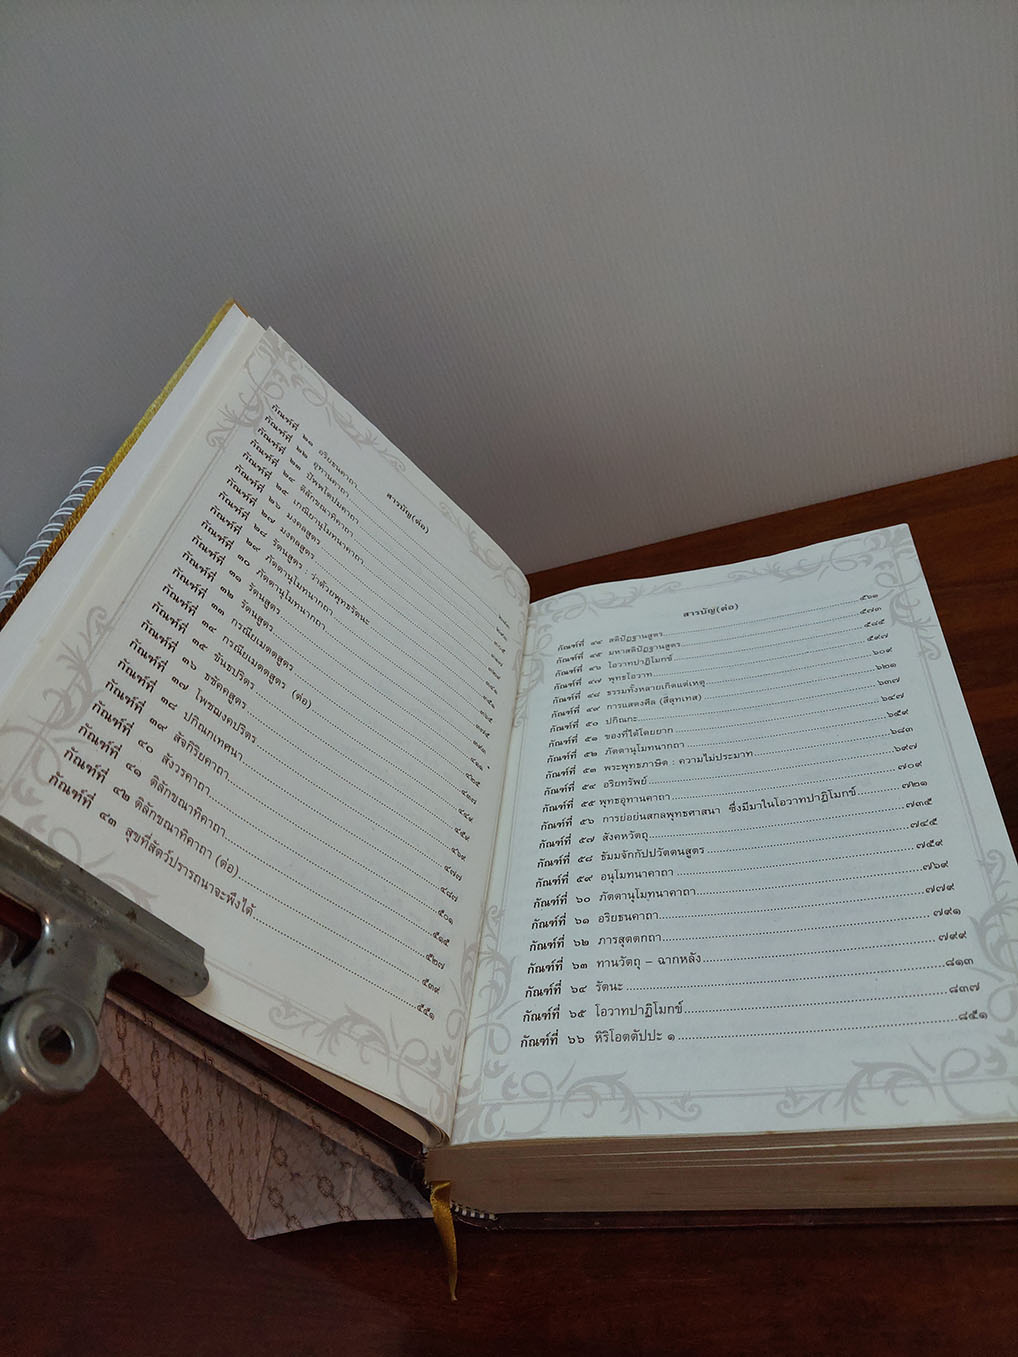 สารบัญ(ต่อ)
กัณฑ์ที่ ๒๑ อริยธนคาถา
กัณฑ์ที่ ๒๒ อุทานคาถา
กัณฑ์ที่ ๒๓ ปัพพโตปมคาถา
กัณฑ์ที่ ๒๔ ติลักขณาทิคาถา
กัณฑ์ที่ ๒๕ เกณิยานุโมทนาคาถา
กัณฑ์ที่ ๒๖ มงคลสูตร
กัณฑ์ที่ ๒๗ มงคลสูตร
กัณฑ์ที่ ๒๘ รัตนสูตร : ว่าด้วยพุทธรัตนะ
กัณฑ์ที่ ๒๙ ภัตตานุโมทนากถา
กัณฑ์ที่ ๓๐ ภัตตานุโมทนากถา
กัณฑ์ที่ ๓๑ รัตนสูตร
กัณฑ์ที่ ๓๒ รัตนสูตร
กัณฑ์ที่ ๓๓ กรณียเมตตสูตร
กัณฑ์ที่ ๓๔ กรณียเมตตสูตร (ต่อ)
กัณฑ์ที่ ๓๕ ขันธปริตร
กัณฑ์ที่ ๓๖ ธชัคคสูตร
กัณฑ์ที่ ๓๗ โพชฌงคปริตร
กัณฑ์ที่ ๓๘ ปกิณกเทศนา
กัณฑ์ที่ ๓๙ สังกิริยคาถา ๔๗๗
กัณฑ์ที่ ๔๐ สังวรคาถา ๔๘๗
กัณฑ์ที่ ๔๑ ติลักขณาทิคาถา
กัณฑ์ที่ ๔๒ ติลักขณาทิคาถา (ต่อ) ๕๓๙
กัณฑ์ที่ ๔๓ สุขที่สัตว์ปรารถนาจะพึงได้ ๕๕๑
สารบัญ(ต่อ)
กัณฑ์ที่ ๔๔ สติปัฏฐานสูตร ๕๖๑
กัณฑ์ที่ ๔๕ มหาสติปัฏฐานสูตร ๕๗๓
กัณฑ์ที่ ๔๖ โอวาทปาฏิโมกข์ ๕๘๕
กัณฑ์ที่ ๔๗ พุทธโอวาท ๕๙๗
กัณฑ์ที่ ๔๘ ธรรมทั้งหลายเกิดแต่เหตุ ๖๐๙
กัณฑ์ที่ ๔๙ การแสดงศีล (สีลุทเทส) ๖๒๑
กัณฑ์ที่ ๕๐ ปกิณกะ ๖๓๗
กัณฑ์ที่ ๕๑ ของที่ได้โดยยาก ๖๔๗
กัณฑ์ที่ ๕๒ ภัตตานุโมทนากถา ๖๕๙
กัณฑ์ที่ ๕๓ พระพุทธภาษิต : ความไม่ประมาท ๖๘๓
กัณฑ์ที่ ๕๔ อริยทรัพย์ ๖๙๗
กัณฑ์ที่ ๕๕ พุทธอุทานคาถา ๗๐๙
กัณฑ์ที่ ๕๖ การย่อย่นสกลพุทธศาสนา ซึ่งมีมาในโอวาทปาฏิโมกข์ ๗๒๑
กัณฑ์ที่ ๕๗ สังคหวัตถุ ๗๓๕
กัณฑ์ที่ ๕๘ ธัมมจักกัปปวัตตนสูตร ๗๔๕
กัณฑ์ที่ ๕๙ อนุโมทนาคาถา ๗๕๙
กัณฑ์ที่ ๖๐ ภัตตานุโมทนาคาถา ๗๖๙
กัณฑ์ที่ ๖๑ อริยธนคาถา ๗๗๙
กัณฑ์ที่ ๖๒ ภารสุตตกถา ๗๙๑
กัณฑ์ที่ ๖๓ ทานวัตถุ – ฉากหลัง ๗๙๙
กัณฑ์ที่ ๖๔ รัตนะ ๘๑๓
กัณฑ์ที่ ๖๕ โอวาทปาฏิโมกข์ ๘๓๗
กัณฑ์ที่ ๖๖ หิริโอตตัปปะ ๑ ๘๕๑